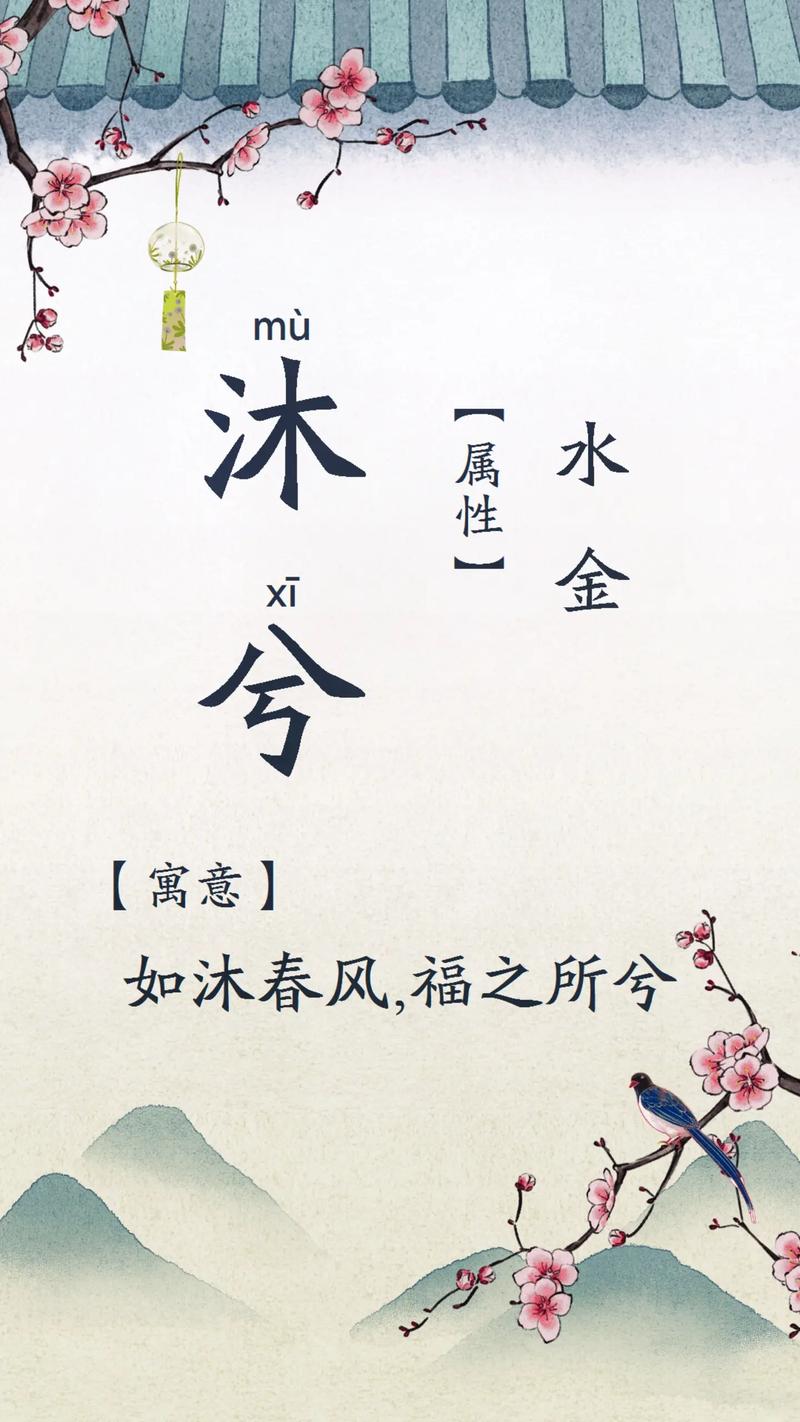 mù
沐
xī
兮
【属性】
水
金
【寓意】
如沐春风,福之所兮